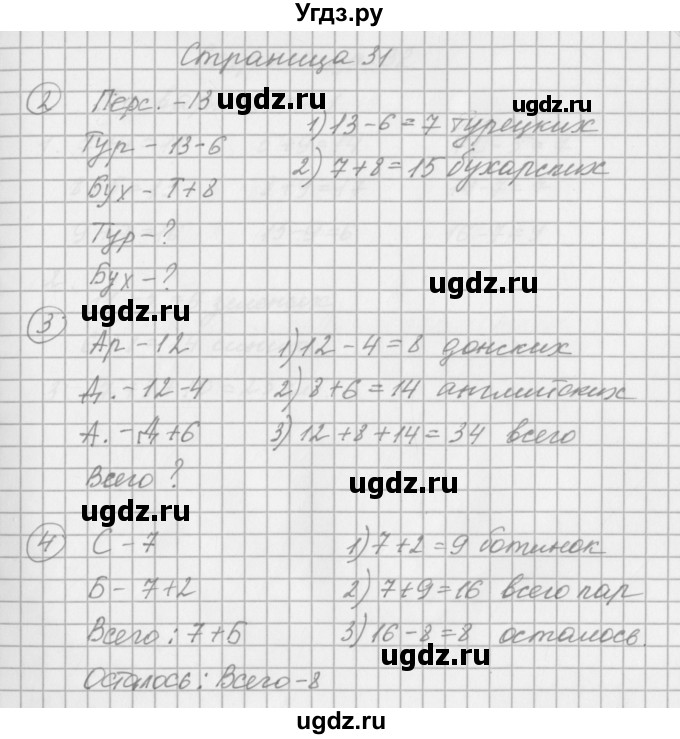 Угдз.ру
Страница 31
2 Перс. - 13 ugdz.ru ugdz.ru
Тур - 13-6 1) 13-6=7 турецких
Бух - Т+8 2) 7+8=15 бухарских
Тур - ?
Бух - ?
ugdz.ru ugdz.ru
3 Ар - 12 1) 12-4=8 донских
Д. - 12-4 2) 8+6=14 английских
ugdz.ru ugdz.ru
А. - Д+6 3) 12+8+14=34 всего
Всего ?
ugdz.ru ugdz.ru
4 С - 7 1) 7+2=9 ботинок
Б - 7+2 2) 7+9=16 всего пар
ugdz.ru
Всего: 7+Б 3) 16-8=8 осталось.
ugdz.ru
Осталось: Всего-8
ugdz.ru